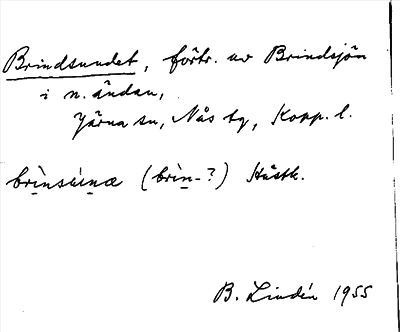 Brindsundet, förtr. av Brindsjön
i n. ändan,
Järna sn, Nås tg, Kopp. l.
brìnsúnæ (brìn-?) Hästb.
B. Lindén 1955